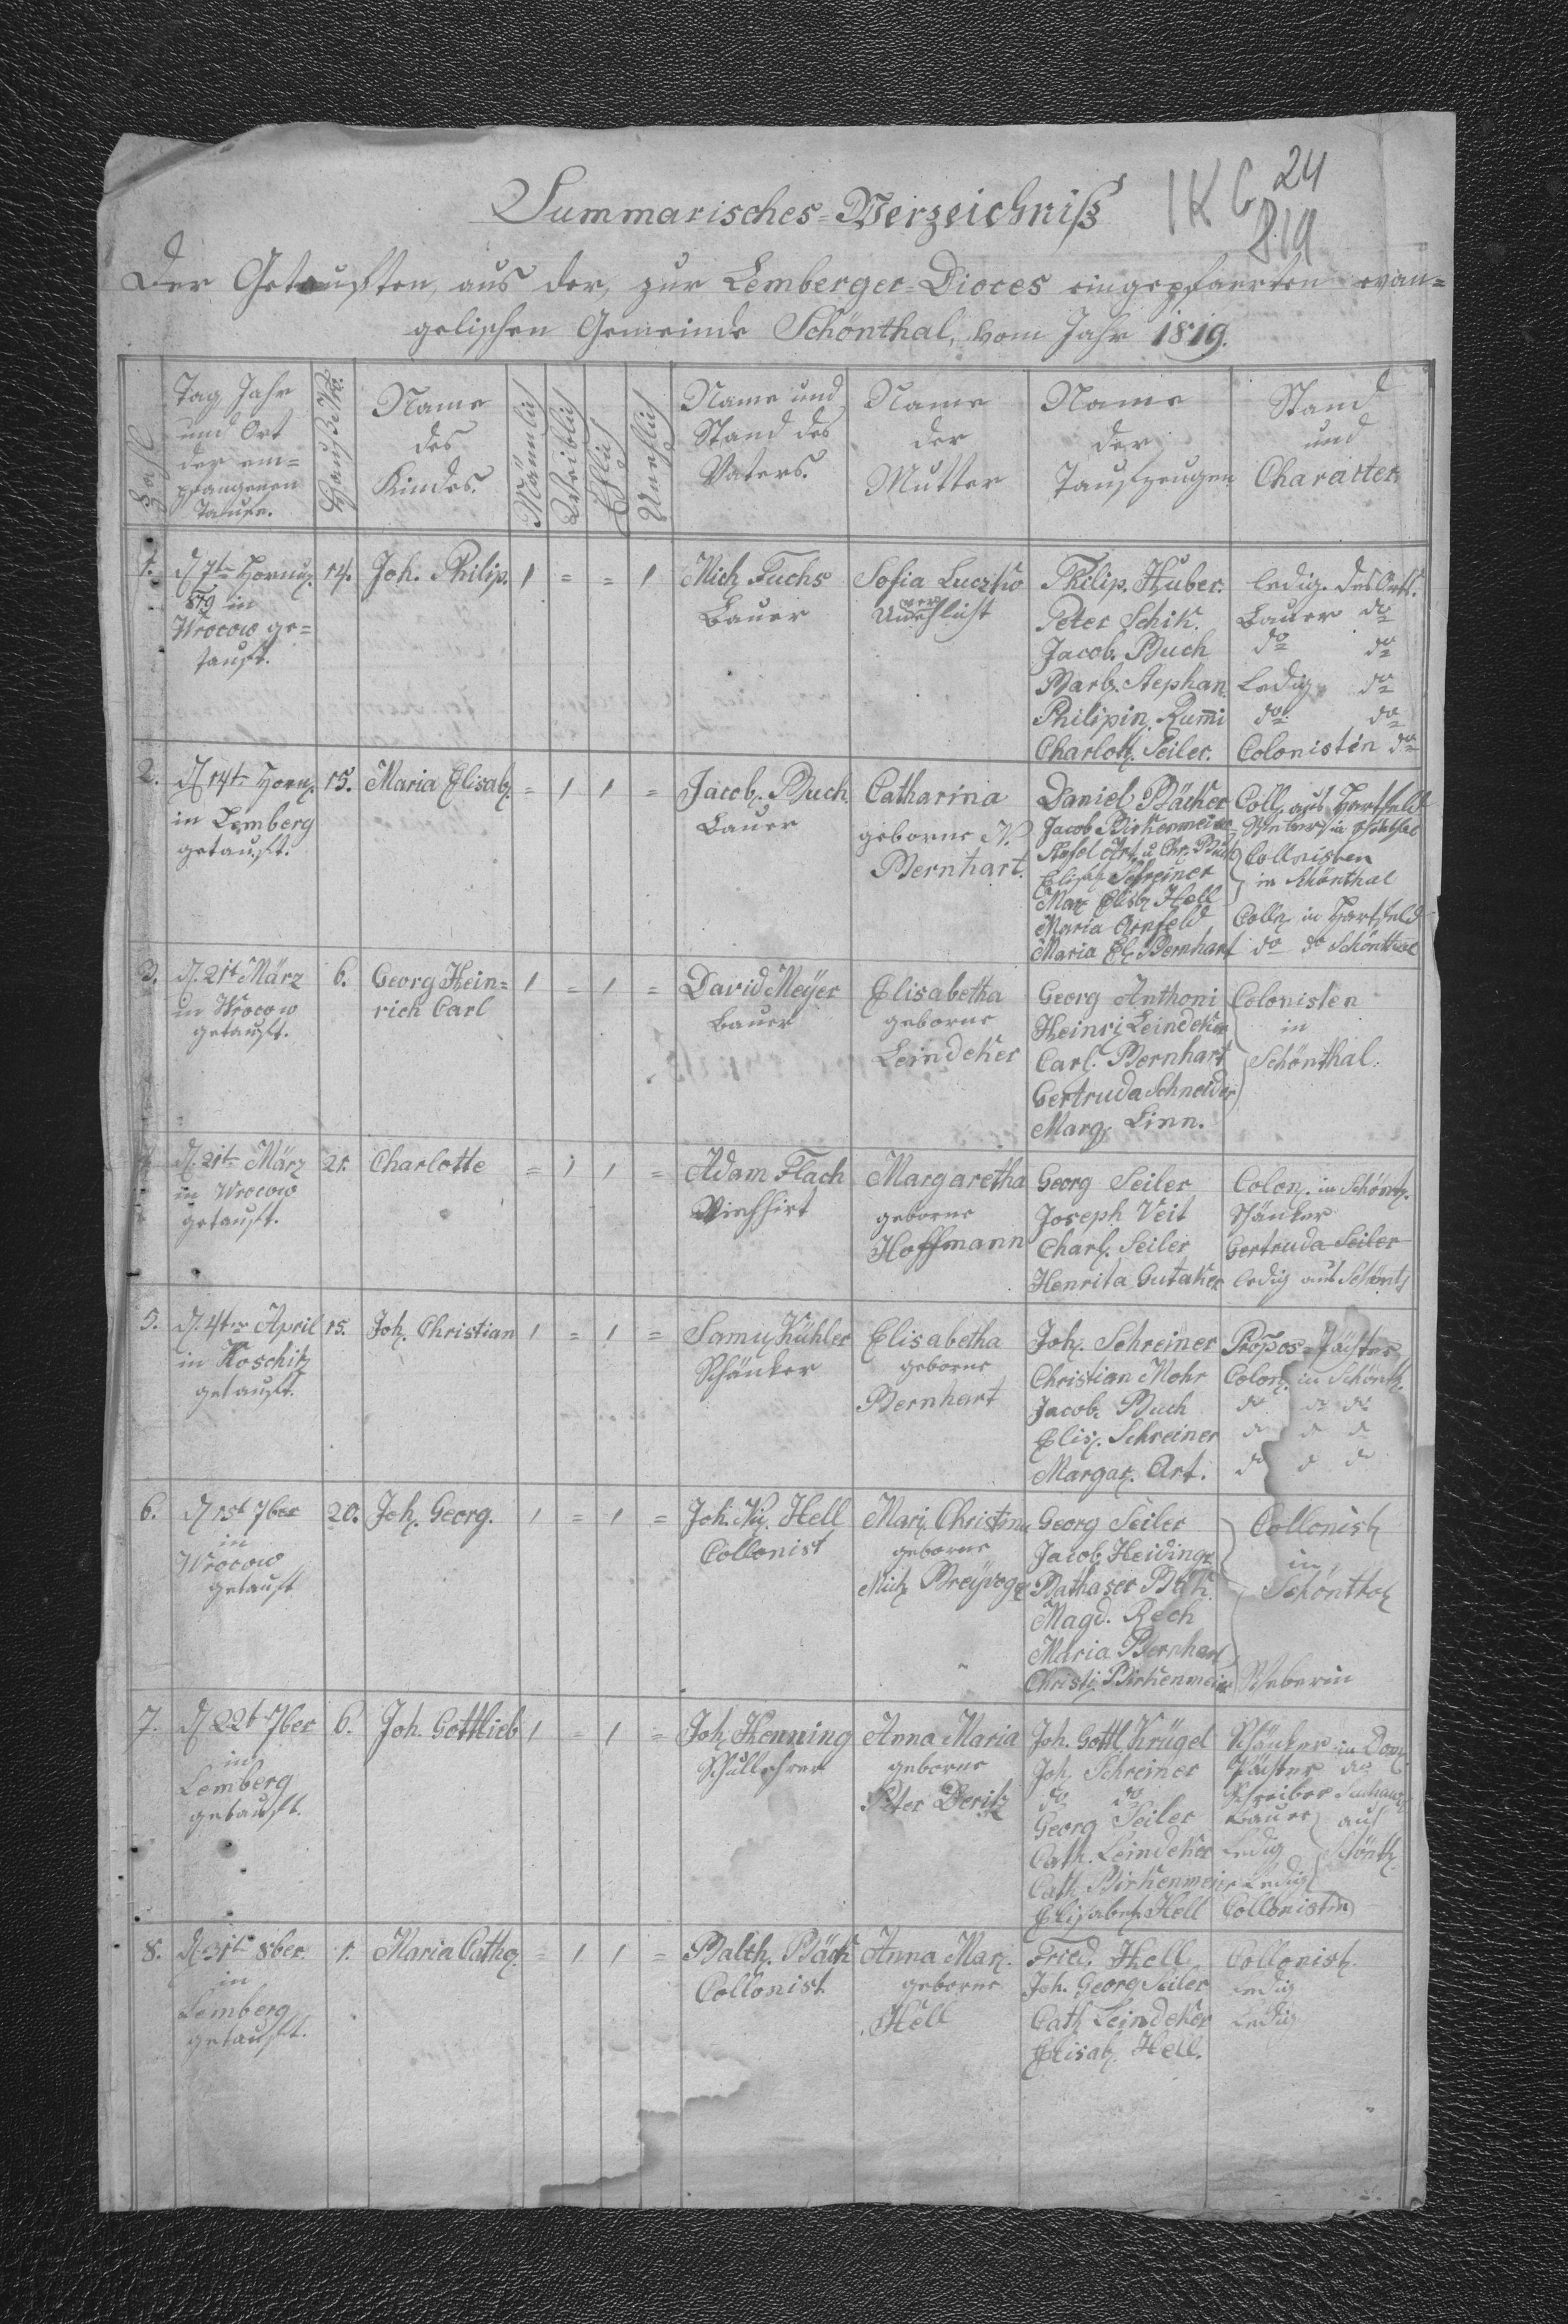 24
IKG
819
Summarisches-Verzeichniß
Der Getauften, aus der, zur Lemberger-Dioces eingepfarrten evan=
gelischen Gemeinde Schönthal, vom Jahr 1819.
Zahl
Tag Jahr
und Ort
der em=
pfangenen
Taufe.
Hauß Nr.
Name
des
Kindes.
Männlich
Weiblich
Ehlich
Unehlich
Name und
Stand des
Vaters.
Name
der
Mutter
Name
der
Taufzeugen
Stand
und
Character
1.
d 7t Hornug.
819 in
Wrocow ge=
tauft.
14.
Joh. Philip.
1 = = 1
Mich Fuchs
Bauer
Sofia
Unverehlicht
Philip. Huber.
Peter Schik.
Jacob. Buch
Barb. Stephan.
Philipin. Rum̅i
Charlott. Seiler.
ledig. des Orts.
Bauer do
do do
Ledig do
do do
Colonistin do
2.
d 14t Horn.
in Lemberg
getauft.
15.
Maria Elisab.
= 1 1 =
Jacob. Buch.
Bauer
Catharina
geborne N.
Bernhart.
Daniel Bäcker
Jacob Birkenmeier
Stofel Art, u Chr. Buch
Elisab. Schreiner
Mar Elisb. Hell
Maria Ornfeld
Maria El. Bernhart
Coll. aus Hartfeld
Weber in Schönthal
Collnisten
in Schönthal
Colln. in Hartfeld
do do Schönthal
3.
d. 21t März
in Wrocow
getauft.
6.
Georg Hein=
rich Carl
1 = 1 =
David Meyer
Bauer
Elisabetha
geborne
Leindeker
Georg Anthoni
Heinri. Leindeker
Carl. Bernhart
Gertruda Schneider
Marg. Linn.
Colonisten
in
Schönthal.
4.
d. 21t März
in Wrocow
getauft.
21.
Charlotte
= 1 1 =
Adam Flach
Viehhirt
Margaretha
geborne
Hoffmann
Georg Seiler
Joseph Veit
Charl. Seiler
Henrita Gutaker
Colon. in Schönt.
Schänker
Gertruda Seiler
ledig aus Schönt.
5.
d. 4ten April
in Koschitz
getauft.
15.
Joh. Christian
1 = 1 =
Samu. Kühler
Schänker
Elisabetha
geborne
Bernhart
Joh. Schreiner
Christian Mohr
Jacob. Buch
Elis. Schreiner
Margar. Art.
Propos=Pächter
Colon. in Schönth.
do do do
do do do
do do do
6.
d 15t 7ber
in
Wrocow
getauft
20.
Joh. Georg.
1 = 1 =
Joh. Ni. Hell
Collonist
Mari. Christina
geborne
Georg Seiler
Jacob Heidinger
Bathaser Bäk
Magd. Rech
Maria Bernhart
Christi. Birkenmeier
Collonist.
in
Schönthal
Weberin
7.
d 22t 7ber
in
Lemberg
getauft.
6.
Joh. Gottlieb
1 = 1 =
Joh. Henning
Schullehrer
Anna Maria
geborne
Peter Deritz
Joh. Gottl. Krügel
Joh. Schreiner
do do
Georg Seiler
Cath. Leindeker
Cath. Birkenmeier
Elisabet. Hell
Schänker in
Pächter do
Schreiber
Bauer
Ledig
Ledig
Collonistin
aus
Schönth.
8.
d 31t 8ber.
in
Lemberg
getauft.
1.
Maria Catha.
= 1 1 =
Balth. Bäck
Collonist
Anna Mar.
geborne
Hell
Fried. Hell
Joh. Georg Seiler
Cath. Leindeker
Elisab. Hell.
Collonist.
Ledig
Ledig